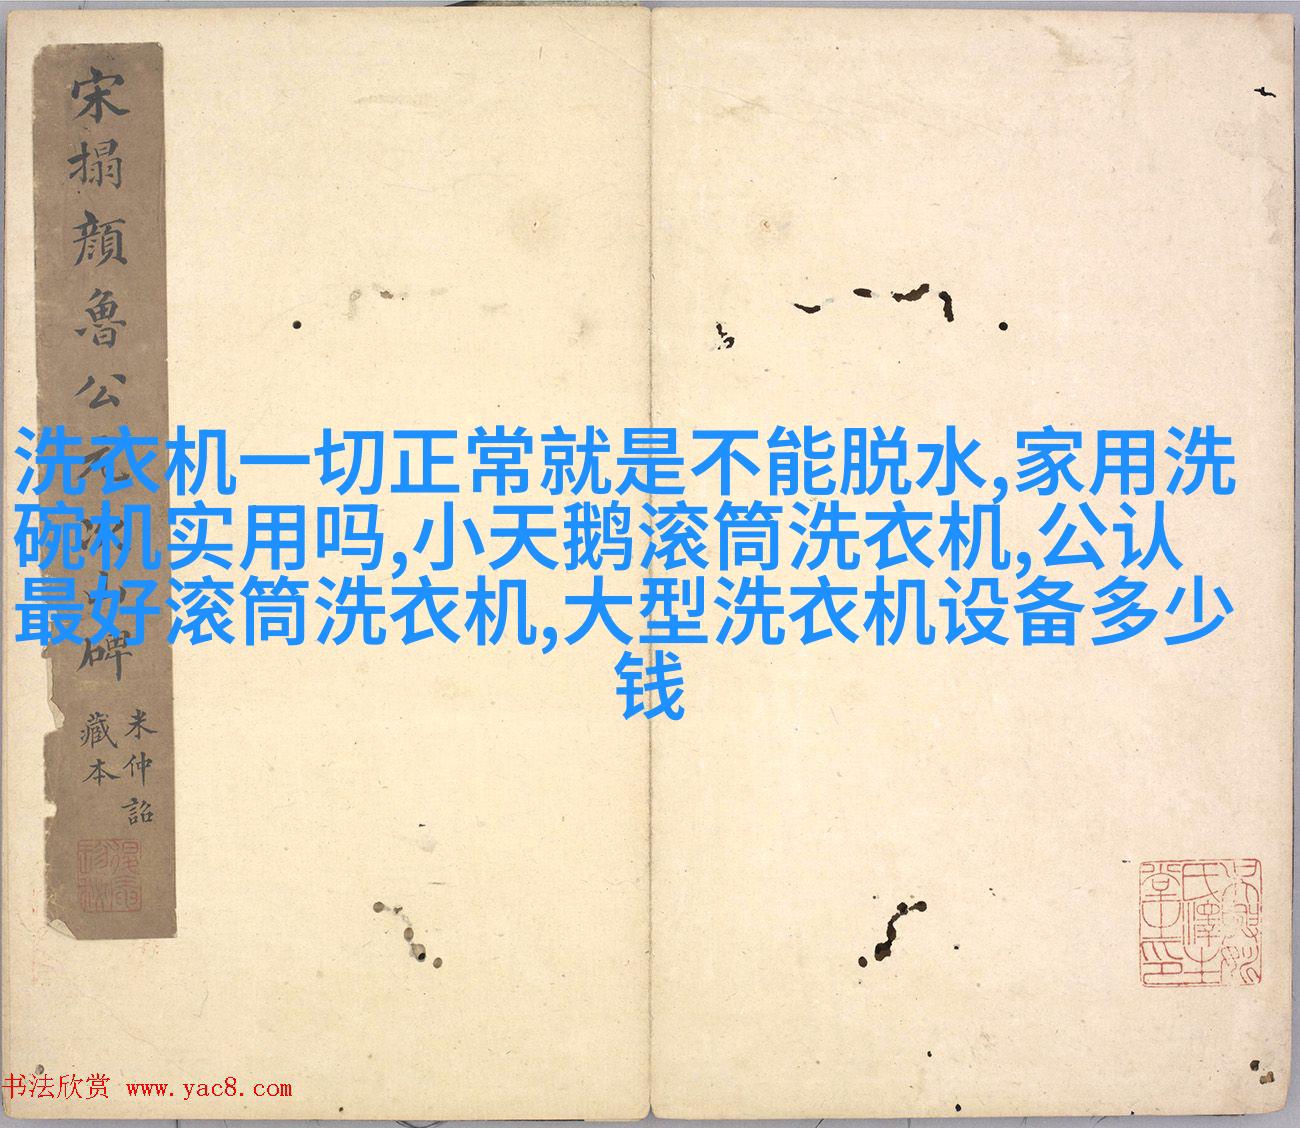 宋搨顔魯公元次山碑
米仲詔
藏本
洗衣机一切正常就是不能脱水,家用洗
碗机实用吗,小天鹅滚筒洗衣机,公认
最好滚筒洗衣机,大型洗衣机设备多少
钱
书法欣赏 www.yac8.com